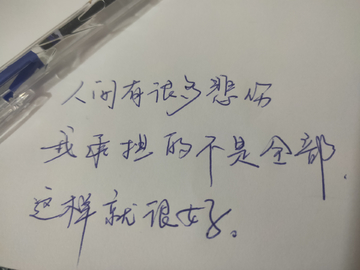 人间有很多悲伤
我承担的不是全部.
这样就很好。